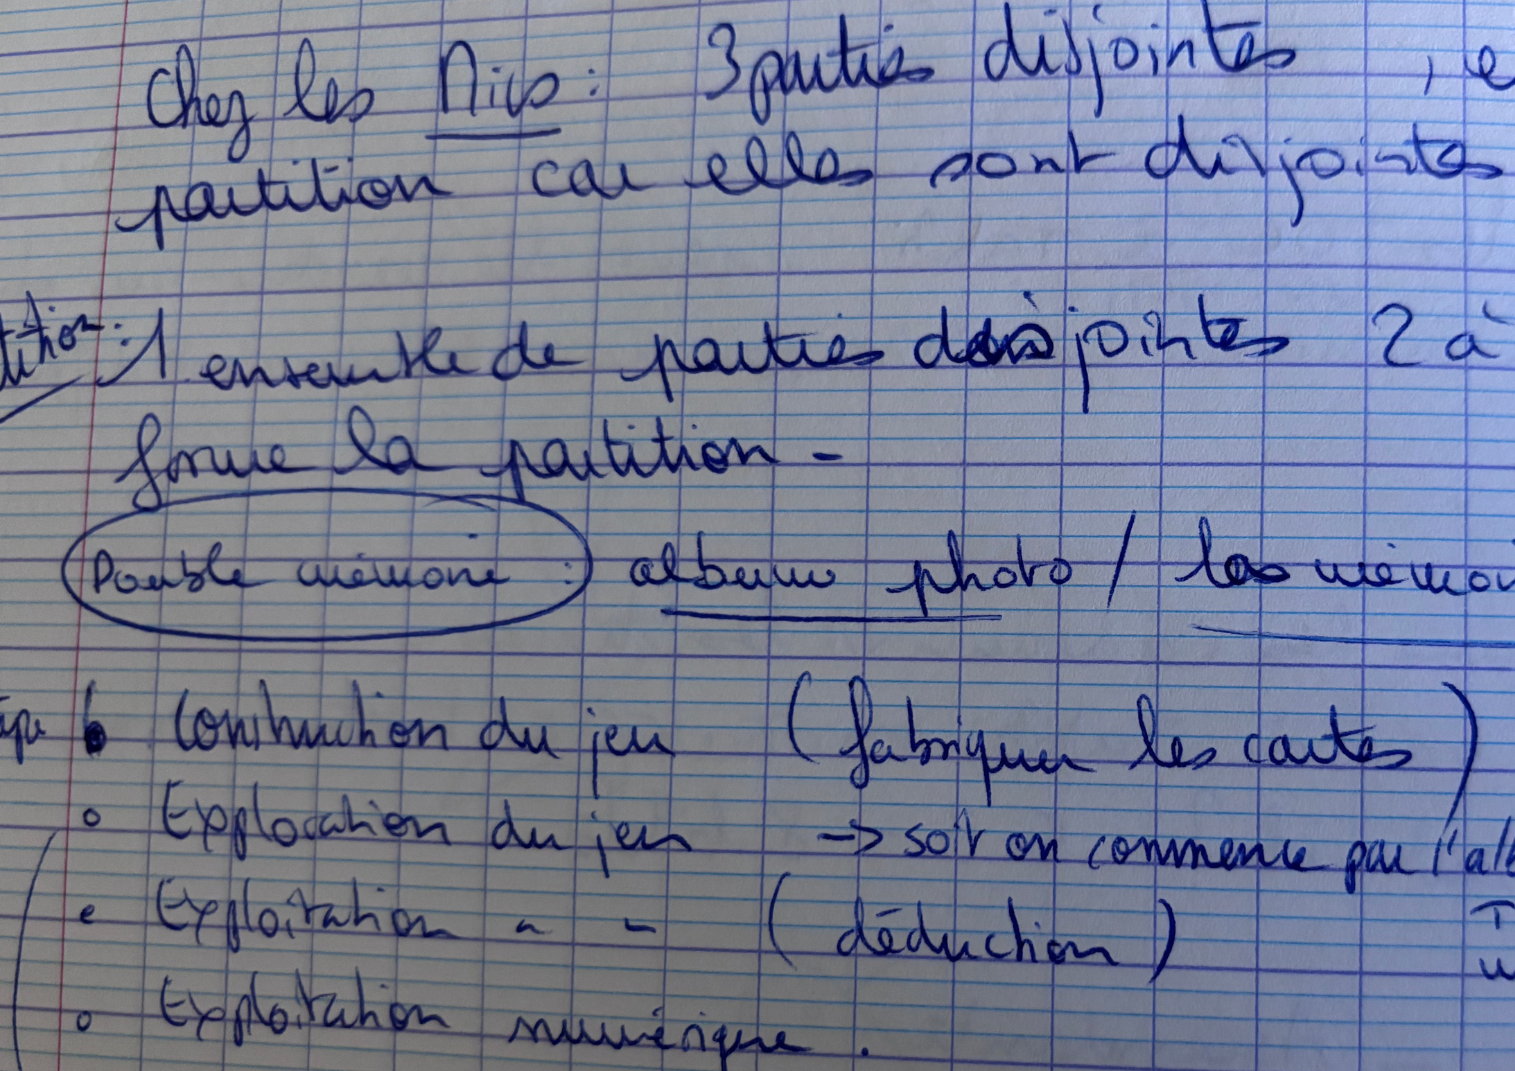 Chez les Nics : 3 parties disjointes , e
partition car elles sont disjointes
tition : 1 ensemble de parties disjointes 2 à
forme la partition -
Double mémoire : album photo / les mémoi
Construction du jeu (fabriquer les cartes)
o Exploration du jeu -> soit on commence par l'alb
• Exploitation " " (déduction)
o Exploitation numérique .